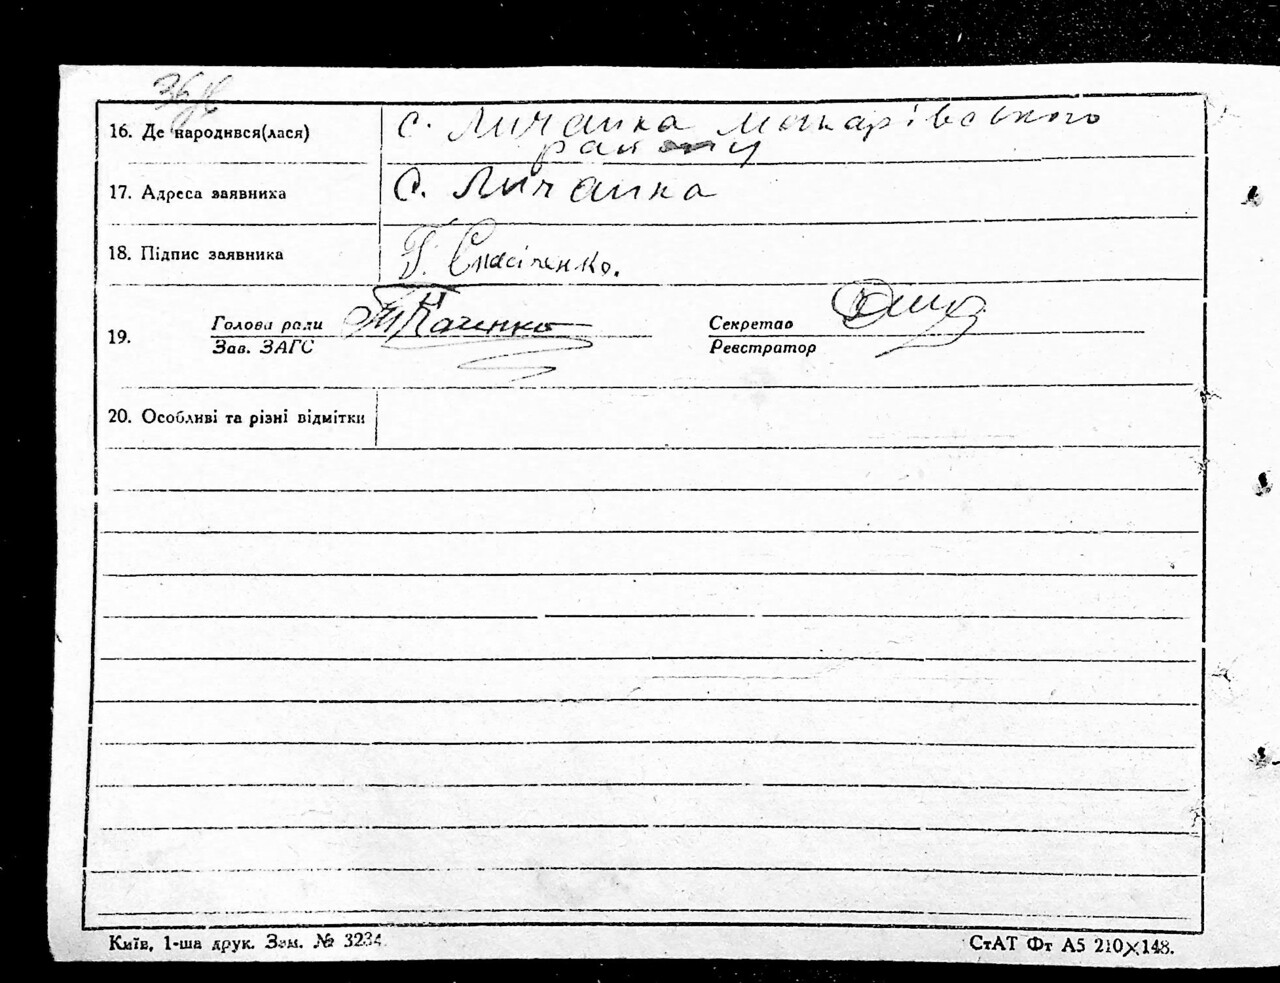 16. Де народився(лася) с. Личанка Макарівського
району
17. Адреса заявника с. Личанка
18. Підпис заявника Г.
19. Голова ради Ткаченко Секретар
Зав. ЗАГС Реєстратор
20. Особливі та різні відмітки
Київ, 1-ша друк. Зам. № 3234 СтАТ Фт А5 210×148.